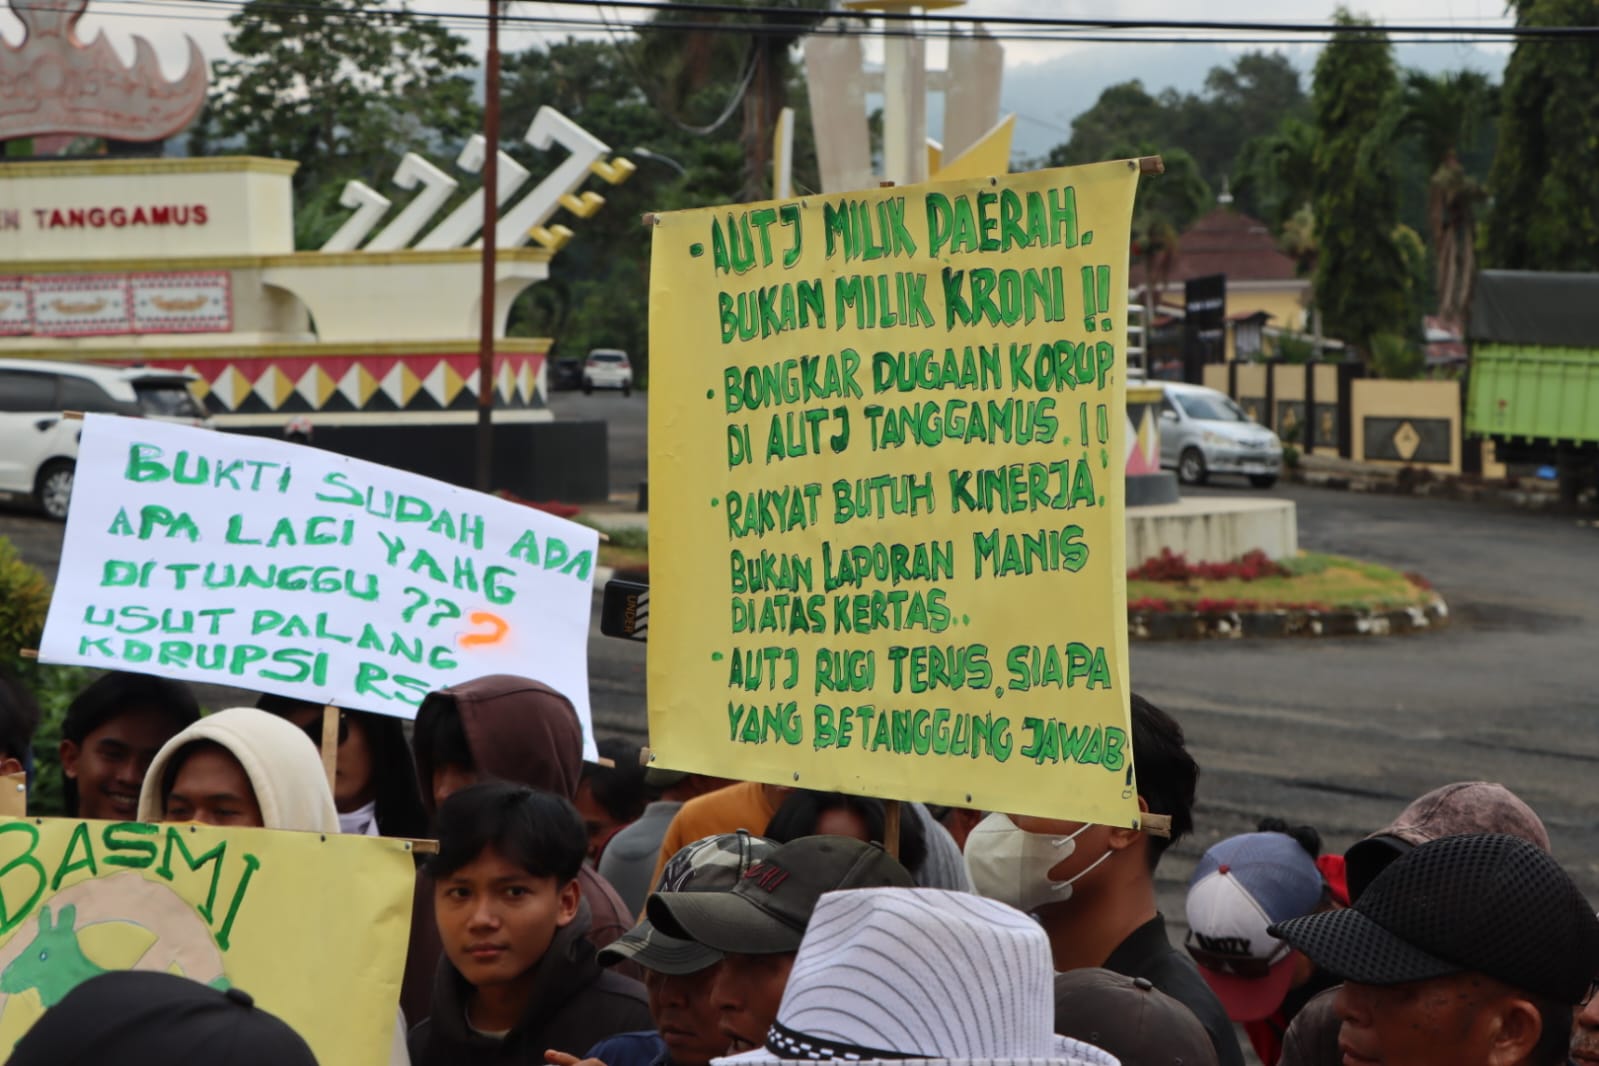 TANGGAMUS
• AUTJ MILIK DAERAH.
BUKAN MILIK KRONI !!
• BONGKAR DUGAAN KORUP
DI AUTJ TANGGAMUS. !!
• RAKYAT BUTUH KINERJA.
BUKAN LAPORAN MANIS
DIATAS KERTAS..
• AUTJ RUGI TERUS, SIAPA
YANG BETANGGUNG JAWAB!
BUKTI SUDAH ADA
APA LAGI YAHG
DITUNGGU ???
USUT DALANG
KORUPSI
UNDER
BASMI